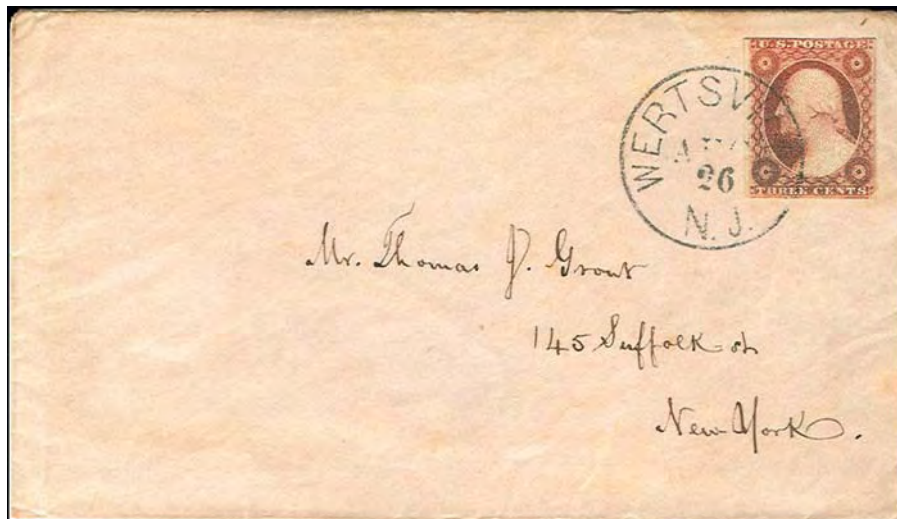 U.S. POSTAGE
THREE CENTS
WERTSV
26
N.J.
Mr. Thomas J. Grout
145 Suffolk st
New York.